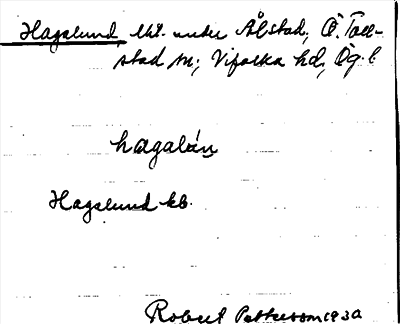 Hagalund, lht. under Ålstad, Ö. Toll-
stad sn; Vifolka hd, Ög. l
hagalún
Hagalund kb.
Robert Pettersson 1930